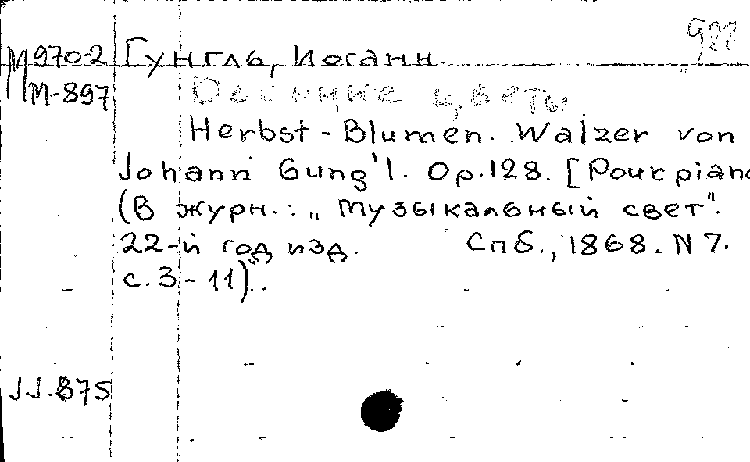 922
М970-2 Гунгль, Иоганн
М-897 Осенние цветы
Herbst-Blumen. Walzer von
Johann Gung'l. Op.128. [Pour piano
(В журн.: „Музыкальный свет".
22-й год изд. Спб., 1868. N 7.
с. 3-11).
JJ.875